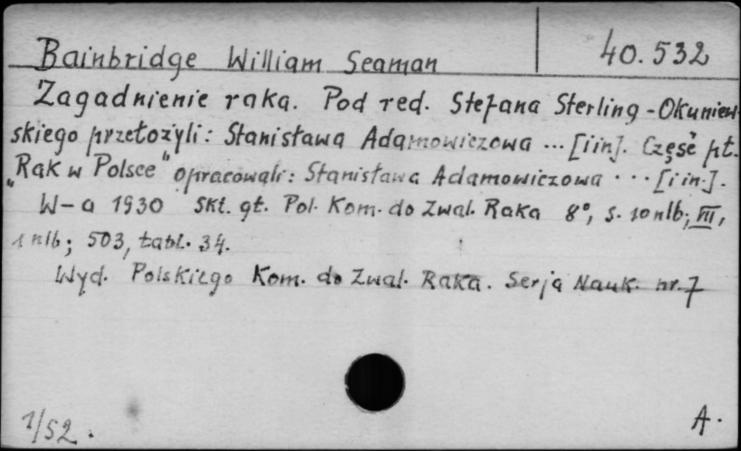 Bainbridge William Seaman 40.532
Zagadnienie raka. Pod red. Stefana Sterling-Okuniew
skiego przełożyli: Stanisława Adamowiczowa ... [i in]. Część pt.
„Rak w Polsce" opracowali: Stanisława Adamowiczowa ... [i in.].
W-a 1930 Skł. gł. Pol. Kom. do Zwal. Raka 8°, s. 10 nlb; VII,
1 nlb; 503, tabl. 34.
Wyd. Polskiego Kom. do Zwal. Raka. Serja Nauk. nr. 7
1/52. A.